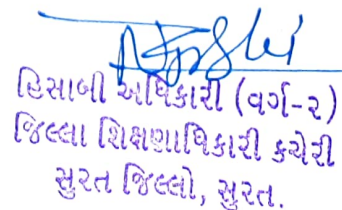 હિસાબી અધિકારી (વર્ગ-૨)
જિલ્લા શિક્ષણાધિકારી કચેરી
સુરત જિલ્લો, સુરત.